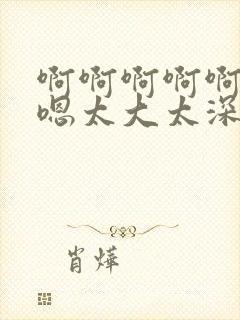 啊啊啊啊啊
嗯太大太深
肖烨